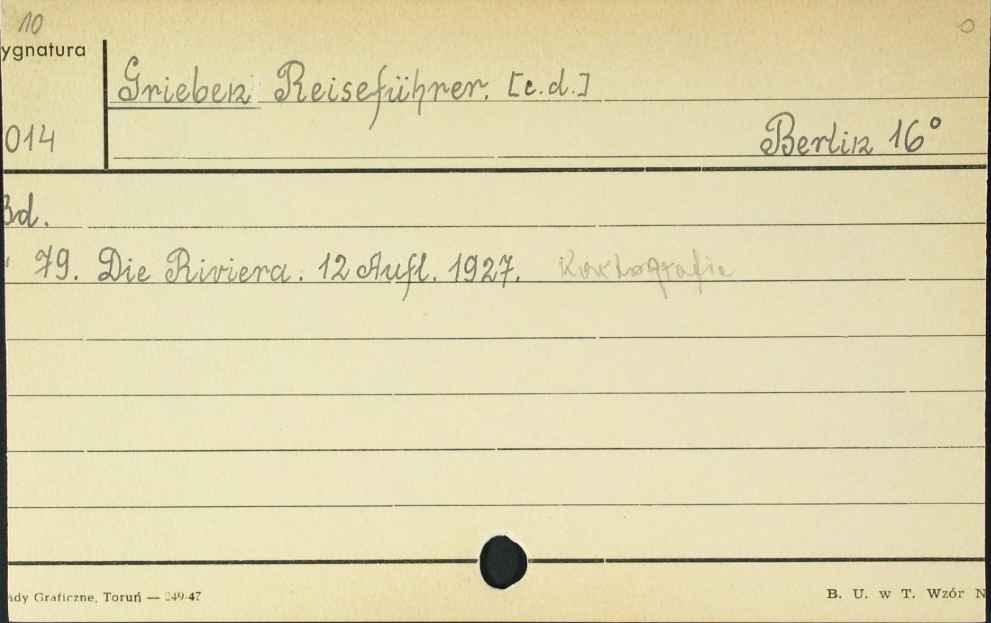 10
ygnatura
Grieben Reiseführer. [c.d.]
014
Berlin 16°
Bd.
79. Die Riviera. 12 Aufl. 1927. Kartografie
ady Graficzne, Toruń — 249-47
B. U. w T. Wzór N